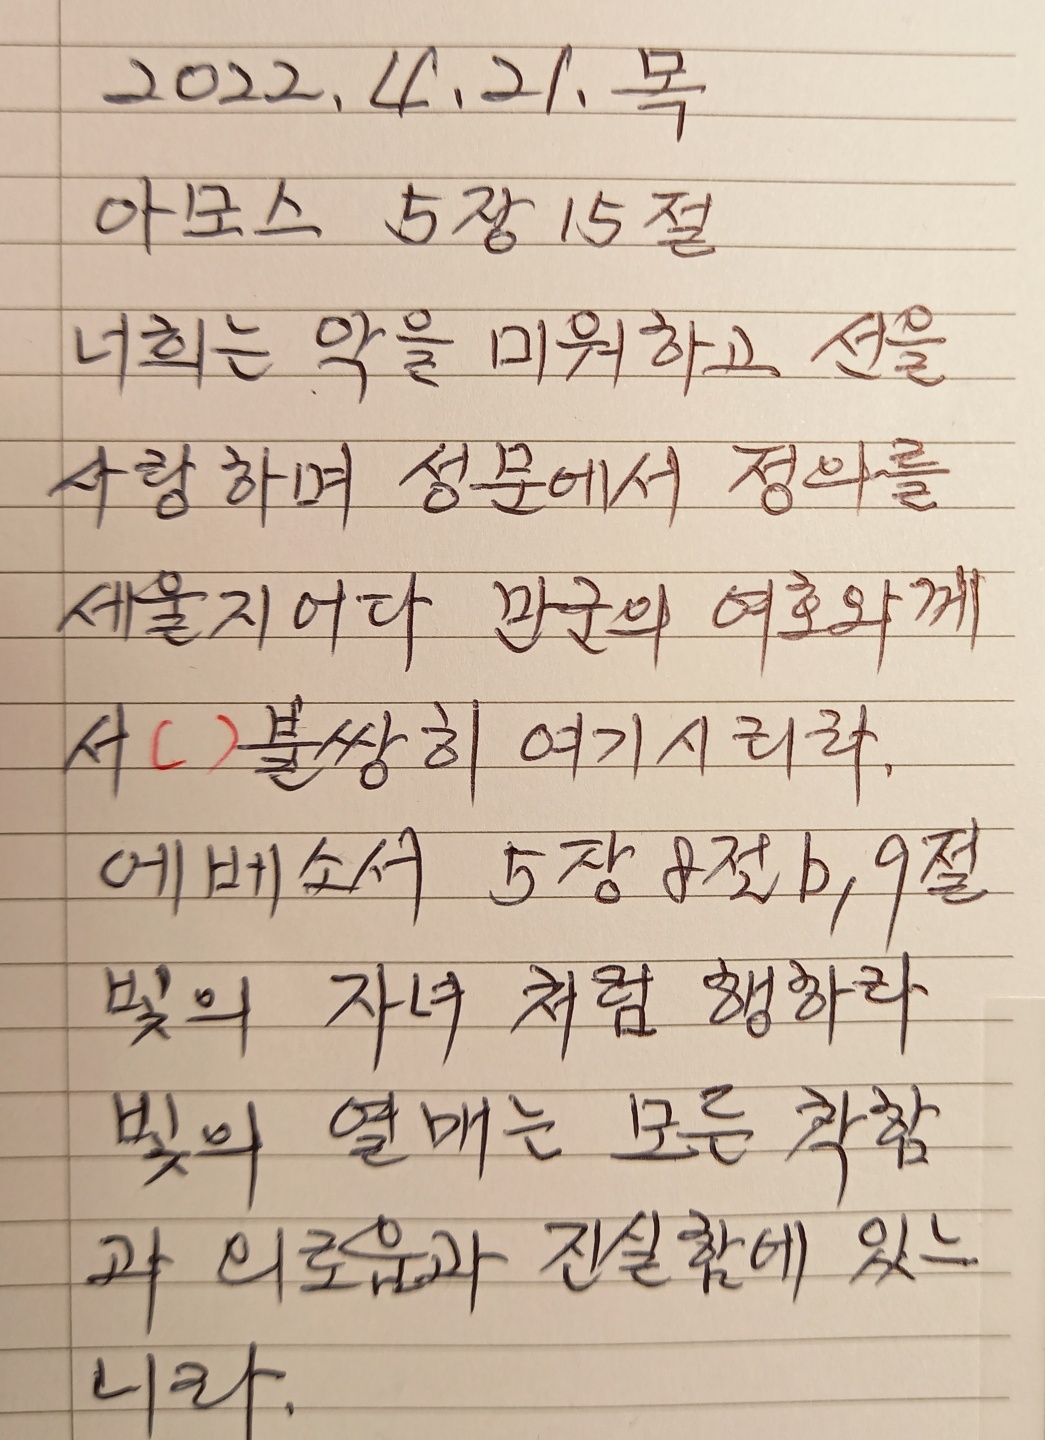 2022. 4. 21. 목
아모스 5장 15절
너희는 악을 미워하고 선을
사랑하며 성문에서 정의를
세울지어다 만군의 여호와께
서 ( ) 불쌍히 여기시리라.
에베소서 5장 8절 b, 9절
빛의 자녀 처럼 행하라
빛의 열매는 모든 착함
과 의로움과 진실함에 있느
니라.